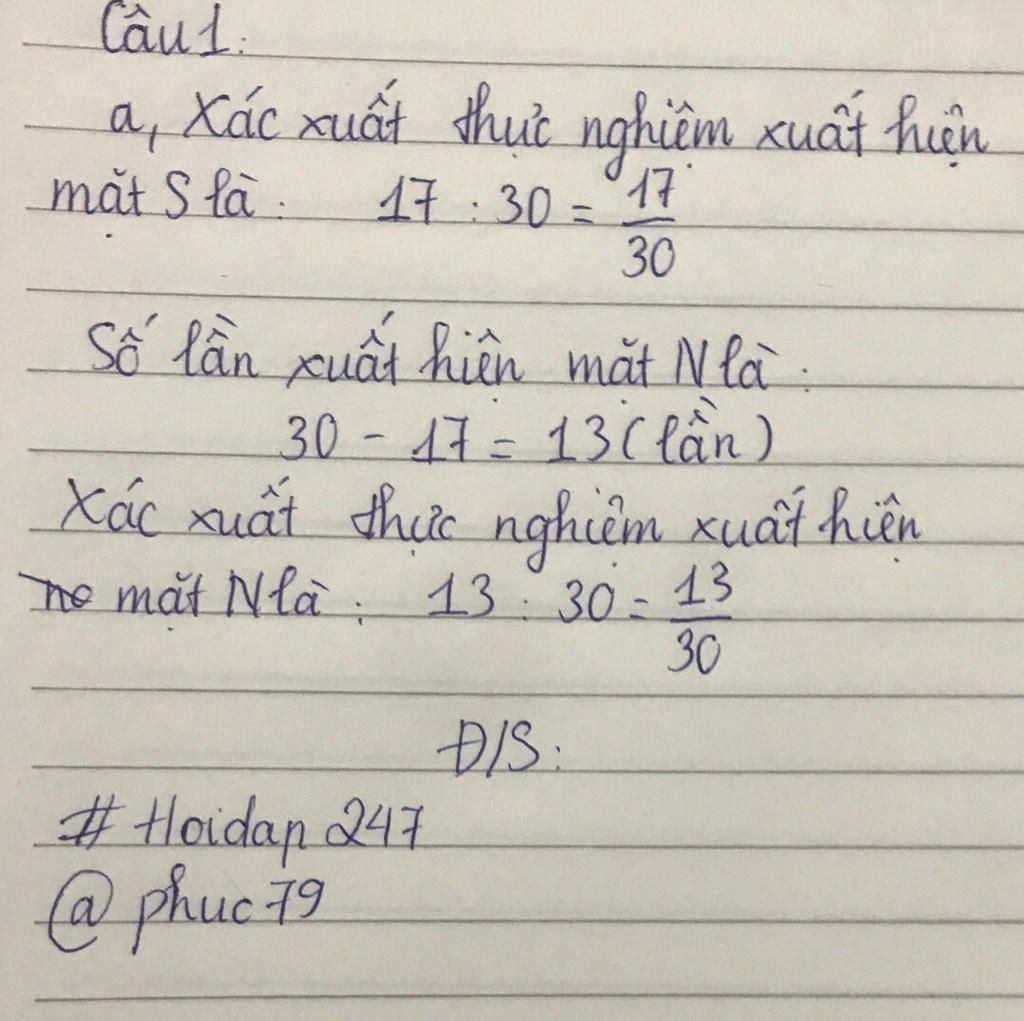 Câu 1:
a, Xác xuất thực nghiệm xuất hiện
mặt S là: 17 : 30 = 17/30
Số lần xuất hiện mặt N là:
30 - 17 = 13 (lần)
Xác xuất thực nghiệm xuất hiện
mặt N là: 13 : 30 = 13/30
Đ/S:
# Hoidap 247
@ phuc 79